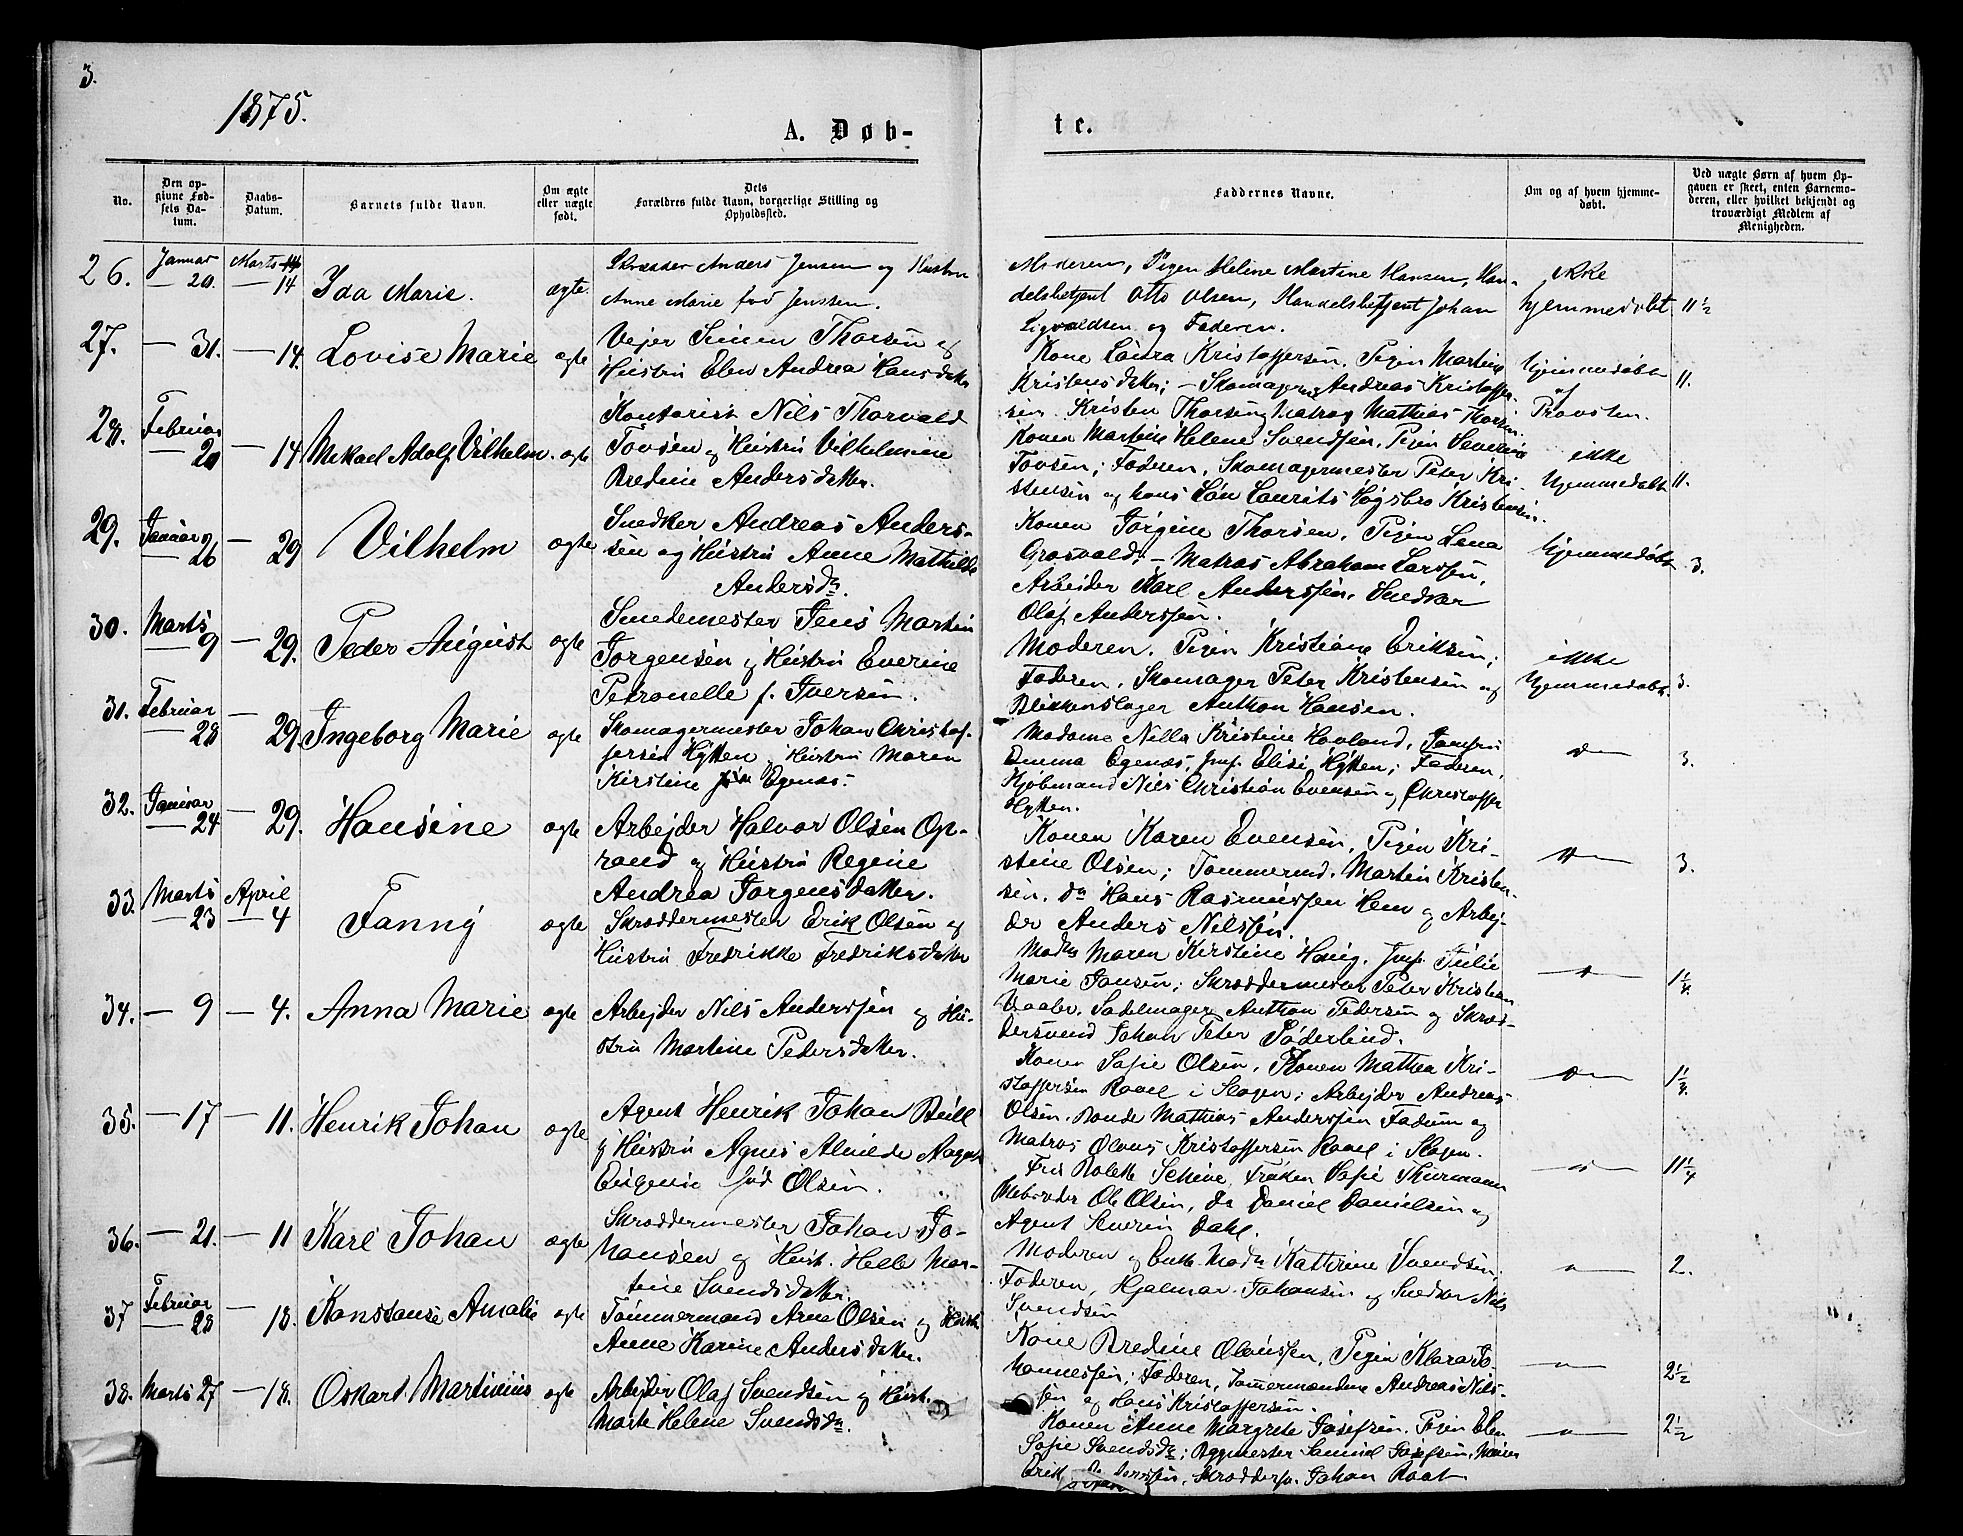 3.
1875.
A. Døb-
te.
No.
Den op-
givne Fød-
sels Da-
tum.
Daabs-
Datum.
Barnets fulde Navn.
Om ægte
eller uægte
født.
Dets
Forældres fulde Navn, borgerlige Stilling og
Opholdssted.
Faddernes Navne.
Om og af hvem hjemme-
døbt.
Ved uægte Børn af hvem Op-
gaven er skeet, enten Barnemo-
deren, eller hvilket bekjendt og
troværdigt Medlem af
Menigheden.
26. Januar 20. Marts 14 Ida Marie. ægte
Anders Jensen og Hustru
Anne Marie fød Jenssen.
Moderen, Pigen Helene Martine Hansen, Han-
delsbetjent Otto Olsen, Handelsbetjent Johan
Sigvaldsen og Faderen.
ikke
hjemmedøbt
11½
27. — 31. — 14. Lovise Marie ægte
Vejer Simen Thorsen og
Hustru Elen Andrea Hansdatter
Kone Laura Kristoffersen, Pigen Martine
Kristensdatter; — Skomager Andreas Kristoffer-
sen. Kristen Thorsen og Matros Mathias Thorsen.
hjemmedøbt
af
Provsten.
11.
28. Februar 20 — 14 Mekael Adolf Vilhelm. ægte
Kontorist Nils Thorvald
Tovsen og Hustru Vilhelmine
Bredine Andersdatter.
Konen Martine Helene Svendsen, Pigen Severine
Tovsen; Faderen, Skomagermester Peter Kri-
stensen og hans Søn Laurits Høgsbro Kristensen.
ikke
hjemmedøbt
11.
29. Januar 26 — 29 Vilhelm ægte
Snedker Andreas Anders-
sen og Hustru Anne Mathilde
Andersdr.
Konen Jørgine Thorsen, Pigen Lena
Grosvold; — Matros Abraham Larssen,
Arbeider Karl Anderssen, Snedker
Olaf Anderssen.
hjemmedøbt
3.
30. Marts 9 — 29. Peder August ægte
Smedemester Jens Martin
Jørgensen og Hustru Everine
Petronelle f. Iversen.
Moderen. Pigen Kristiane Eriksen;
Faderen, Skomager Peter Kristensen og
Blikkenslager Anthon Hansen.
ikke
hjemmedøbt
3.
31. Februar 28 — 29. Ingeborg Marie ægte
Skomagermester Johan Christof-
fersen Hytten og Hustru Maren
Kirstine Egenæs.
Madame Nilla Kristine Hovland, Jomfru
Emma Egenæs, Jmf. Elise Hytten; Faderen,
Kjøbmand Nils Christian Evensen og Christoffer
Hytten.
3.
32. Januar 24 — 29. Hansine ægte
Arbejder Halvor Olsen Op-
rand og Hustru Regine
Andrea Jørgensdatter.
Konen Karen Evensen, Pigen Kri-
stine Olsen; Tømmermd. Martin Kristen-
sen. do Hans Rasmussen Hem og Arbej-
der Anders Nilssen.
3.
33. Marts 23 April 4 Fanny ægte
Skræddermester Erik Olsen og
Hustru Fredrikke Fredriksdatter
Madm Maren Kirstine Haug, Jmf. Julie
Marie Jansen; Skræddermester Peter Kristian
Vaaler, Sadelmager Anthon Pedersen og Skræd-
dersvend Johan Peter Søderlind.
34. — 9 — 4. Anna Marie ægte
Arbejder Nils Anderssen og Hu-
stru Martine Pedersdatter.
Konen Sofie Olsen, Konen Mathea Kri-
stoffersen Raael i Slagen; Arbejder Andreas
Olsen, Bonde Mathias Anderssen Fadum og
Matros Olaus Kristoffersen Raael i Slagen.
35. — 17 — 11. Henrik Johan ægte
Agent Henrik Johan Bull
og Hustru Agnes Alvilde
Eugenie fød Olsen.
Frk Bolette Schive, Frøken Sofie Thurmann
Skibsreder Ole Olsen, Do Daniel Danielsen og
Agent Severin Dahl.
11¼
36. — 21. — 11 Karl Johan ægte
Skræddermester Johan Jo-
hansen og Hust. Helle Mar-
tine Svendsdatter.
Moderen og Enke Madm Kathrine Svendsen,
Faderen, Hjalmar Johansen og Snedker Nils
Svendsen
2.
37 Februar 28 — 18. Konstanse Amalie ægte
Tømmermand Arne Olsen og Hust.
Anne Karine Andersdatter.
Kone Bredine Olaussen, Pigen Klara Jo-
hannessen; Faderen, Tømmermændene Andreas Nils-
sen og Hans Kristoffersen.
2½
38. Marts 27 — 18. Oskar Martinius ægte
Arbejder Olaf Svendsen og Hust.
Marte Helene Svendsdr.
Konen Anne Margrete Josefsen, Pigen Elen
Sofie Svendsdr; Byggmester Samuel Josefsen,
Erik Johan Roal
2½